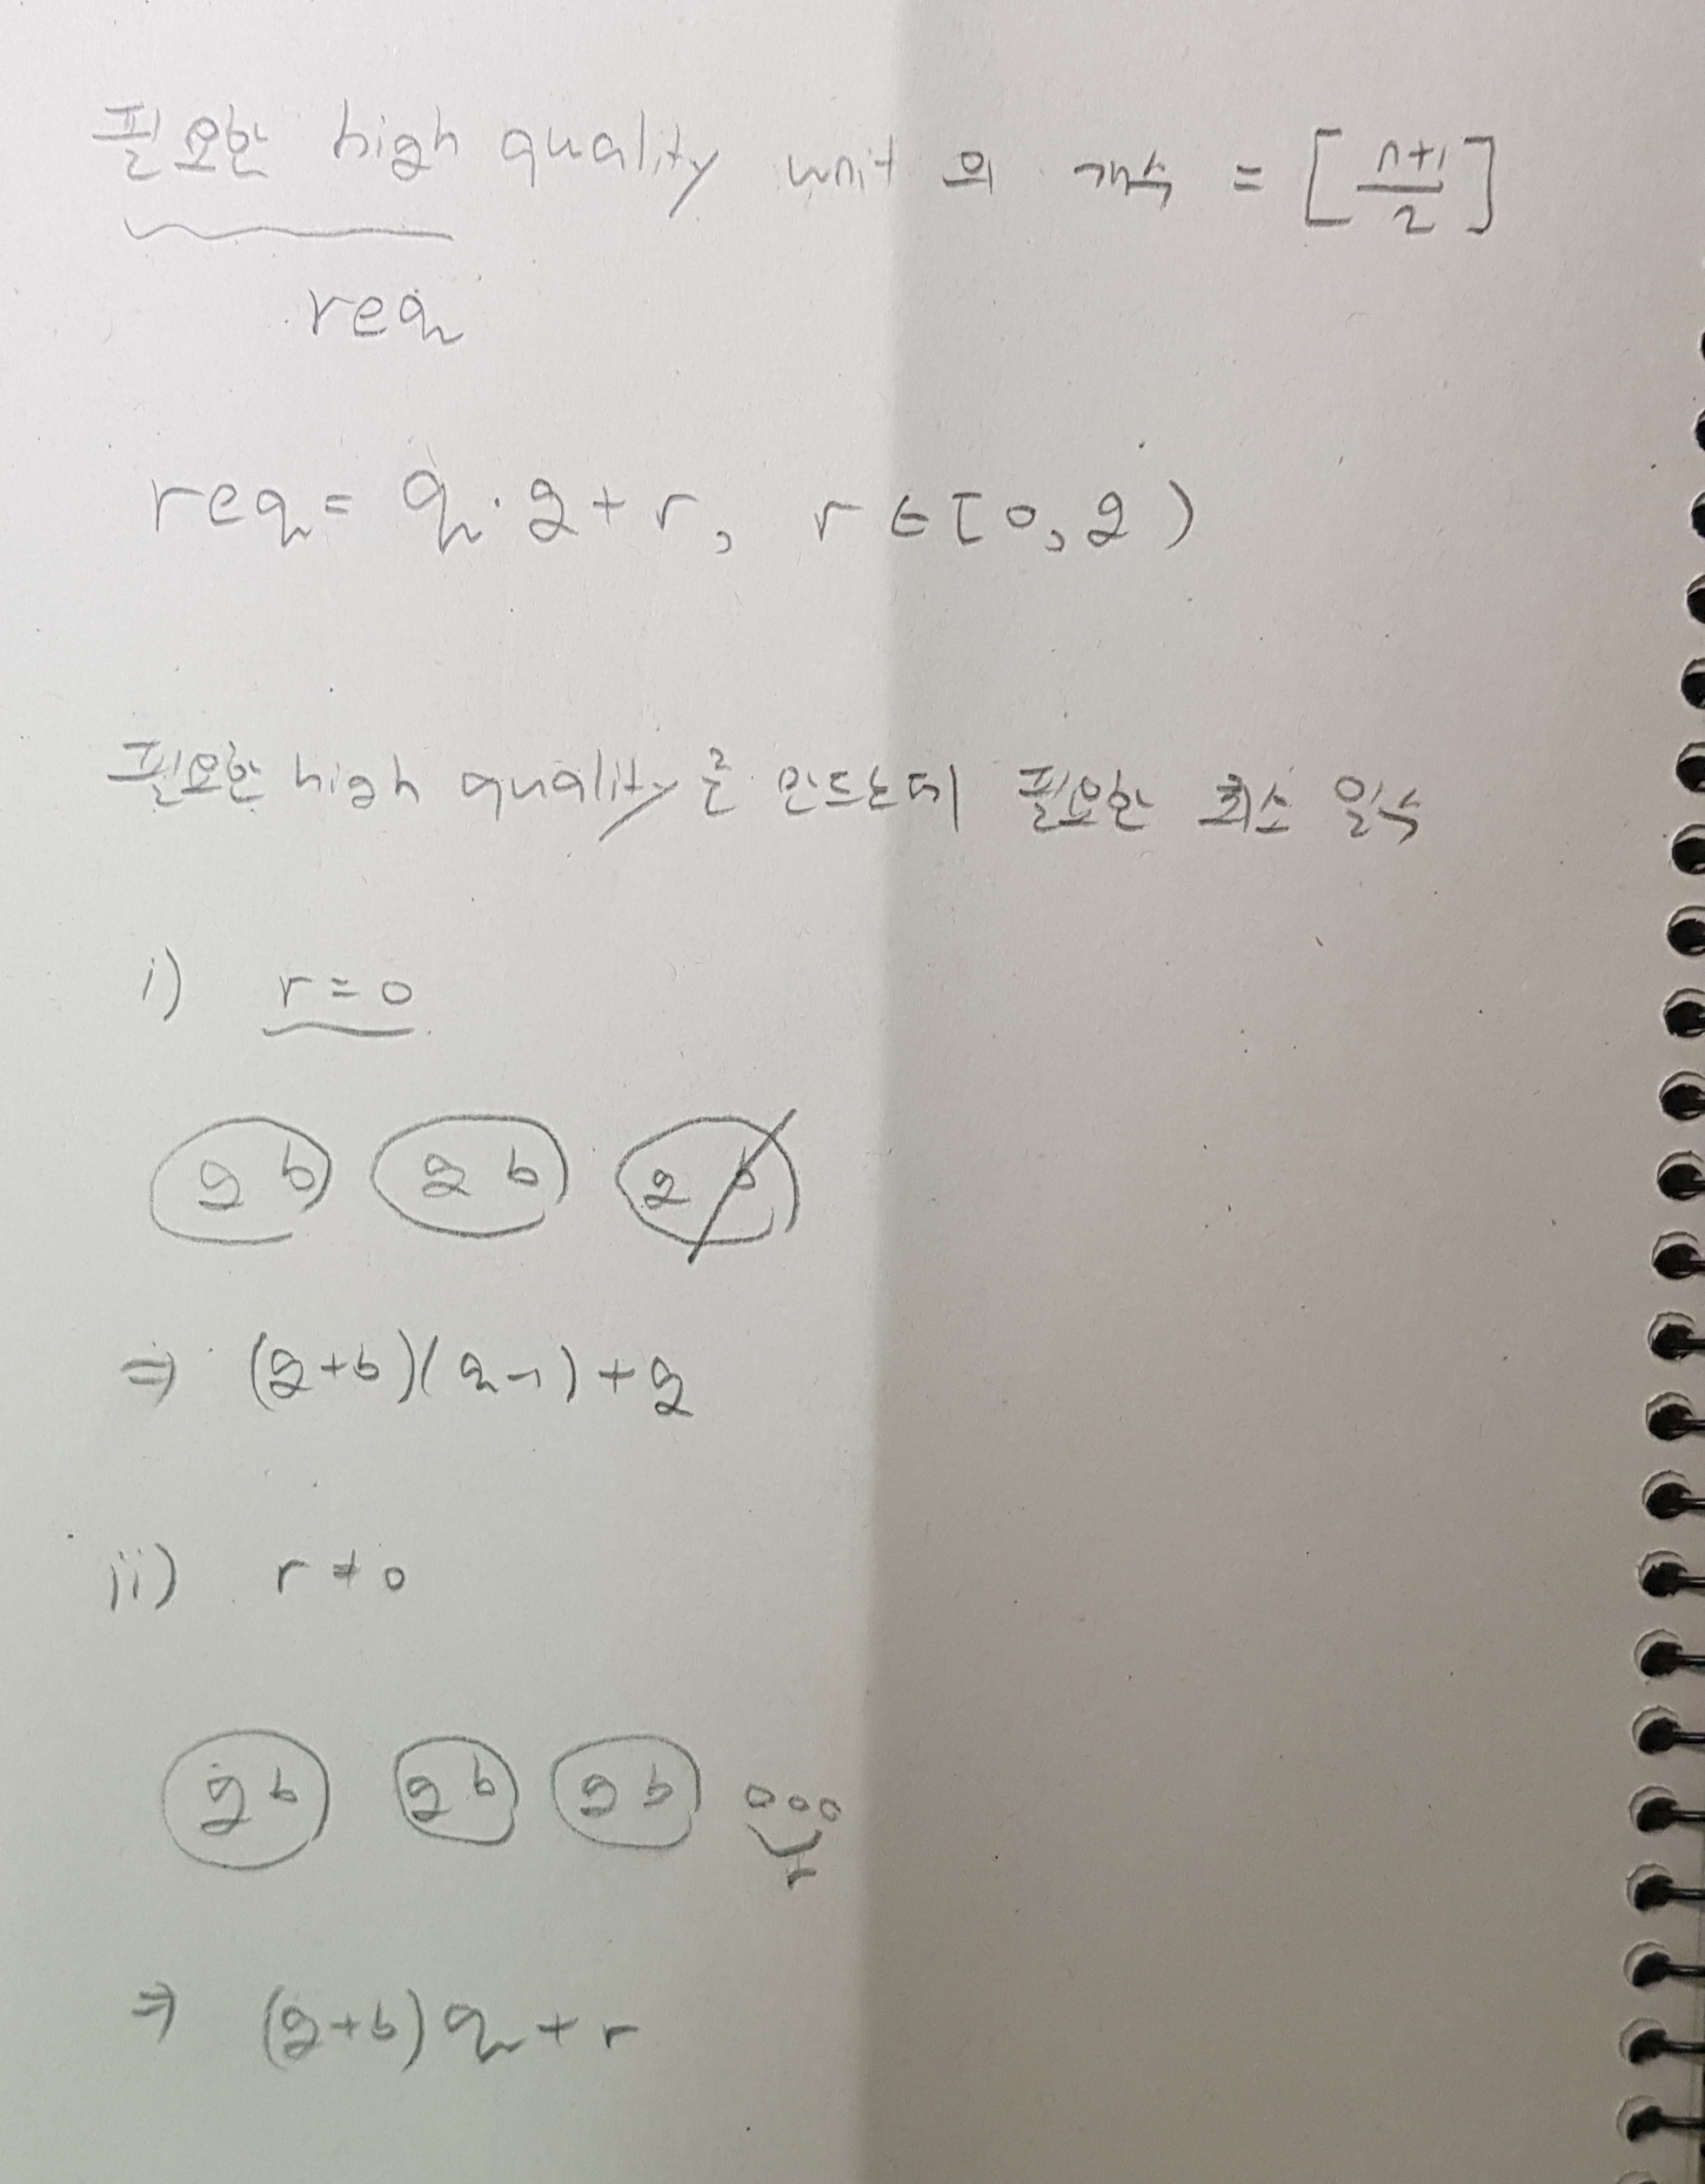 필요한 high quality unit의 개수 = [n+1/2]
req
req = q·g+r, r∈[0,g)
필요한 high quality를 만드는데 필요한 최소 일수
i) r=0
g b g b g b
⇒ (g+b)(q-1)+g
ii) r≠0
g b g b g b ooo
r
⇒ (g+b)q+r